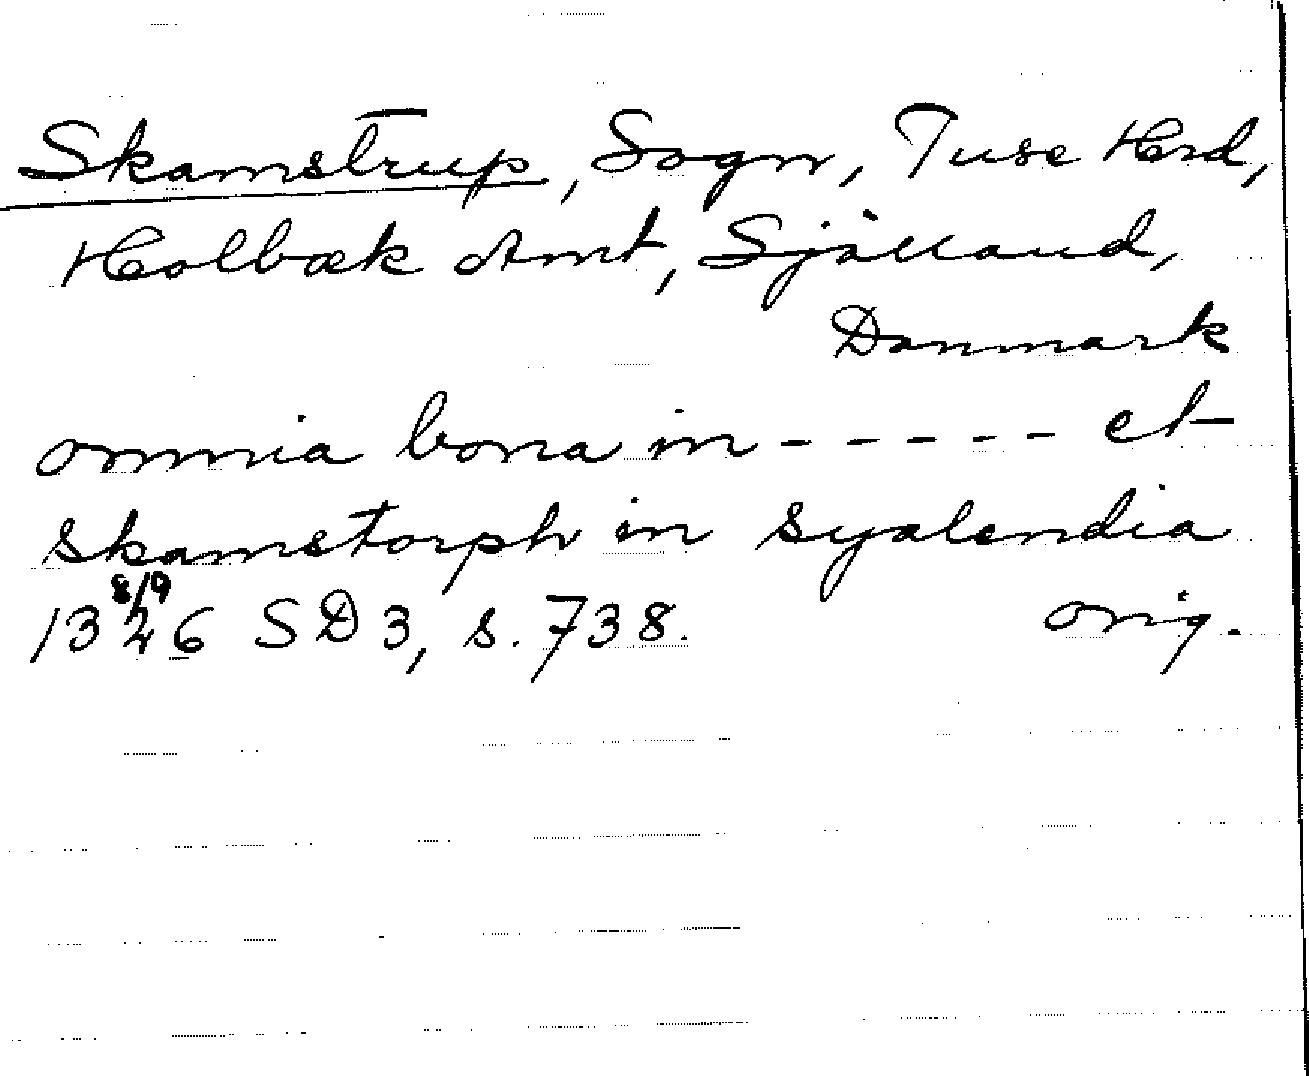 Skamstrup, Sogn, Tuse Hrd,
Holbæk Amt, Själland,
Danmark
omnia bona in - - - - - et
skamstorph in syalendia
13 8/9 26 SD 3, s. 738. orig.